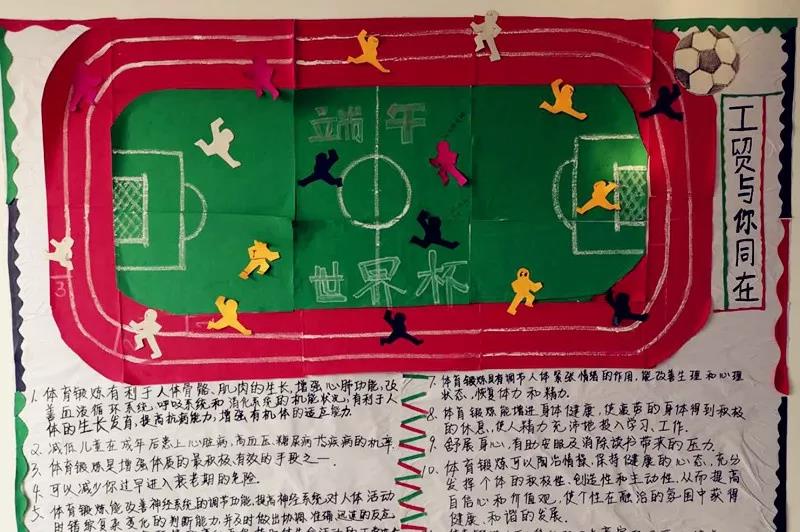 端午
世界杯
工贸与你同在
3
1、体育锻炼有利于人体骨骼、肌肉的生长,增强心肺功能,改
善血液循环系统,呼吸系统和消化系统的机能状况,有利于人
体的生长发育,提高抗病能力,增强有机体的适应能力。
2、减低儿童在成年后患上心脏病,高血压,糖尿病尤疾病的机率.
3、体育锻炼是增强体质的最积极、有效的手段之一.
4、可以减少你过早进入衰老期的危险.
5、体育锻炼能改善神经系统的调节功能,提高神经系统对人体活动
时错综复杂变化的判断能力,并及时做出协调、准确、迅速的反应
7、体育锻炼具有调节人体紧张情绪的作用,能改善生理和心理
状态,恢复体力和精力.
8、体育锻炼能增进身体健康,使疲劳的身体得到积极
的休息,使人精力充沛地投入学习、工作.
9、舒展身心,有助安眠及消除读书带来的压力.
10、体育锻炼可以陶冶情操,保持健康的心态,充分
发挥个体的积极性、创造性和主动性,从而提高
自信心和价值观,使个性在融洽的氛围中获得
健康、和谐的发展.